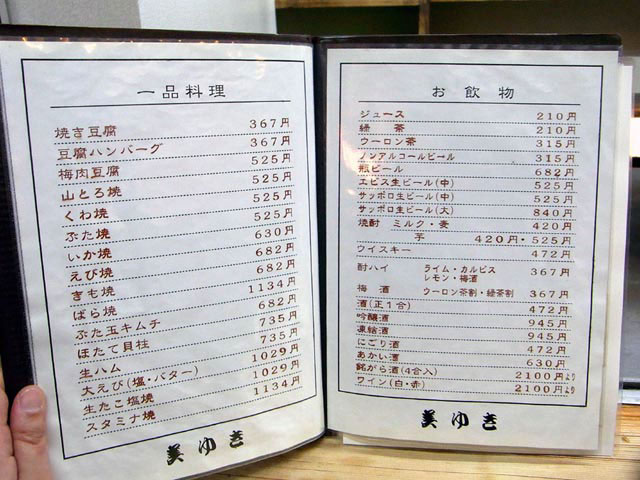 一品料理
焼き豆腐 367円
豆腐ハンバーグ 367円
梅肉豆腐 525円
山とろ焼 525円
くわ焼 525円
ぶた焼 525円
いか焼 630円
えび焼 682円
きも焼 682円
ばら焼 1134円
ぶた玉キムチ 682円
ほたて貝柱 735円
生ハム 735円
大えび(塩・バター) 1029円
生たこ塩焼 1029円
スタミナ焼 1134円
美ゆき
お飲物
ジュース 210円
緑茶 210円
ウーロン茶 315円
ノンアルコールビール 315円
瓶ビール 682円
エビス生ビール(中) 525円
サッポロ生ビール(中) 525円
サッポロ生ビール(大) 840円
焼酎 ミルク・麦 420円
芋 420円・525円
ウイスキー 472円
酎ハイ ライム・カルピス 367円
レモン・梅酒
梅酒 ウーロン茶割・緑茶割 367円
酒(正1合) 472円
吟醸酒 945円
凍結酒 945円
にごり酒 472円
あかい酒 630円
銘がら酒(4合入) 2100円より
ワイン(白・赤) 2100円より
美ゆき